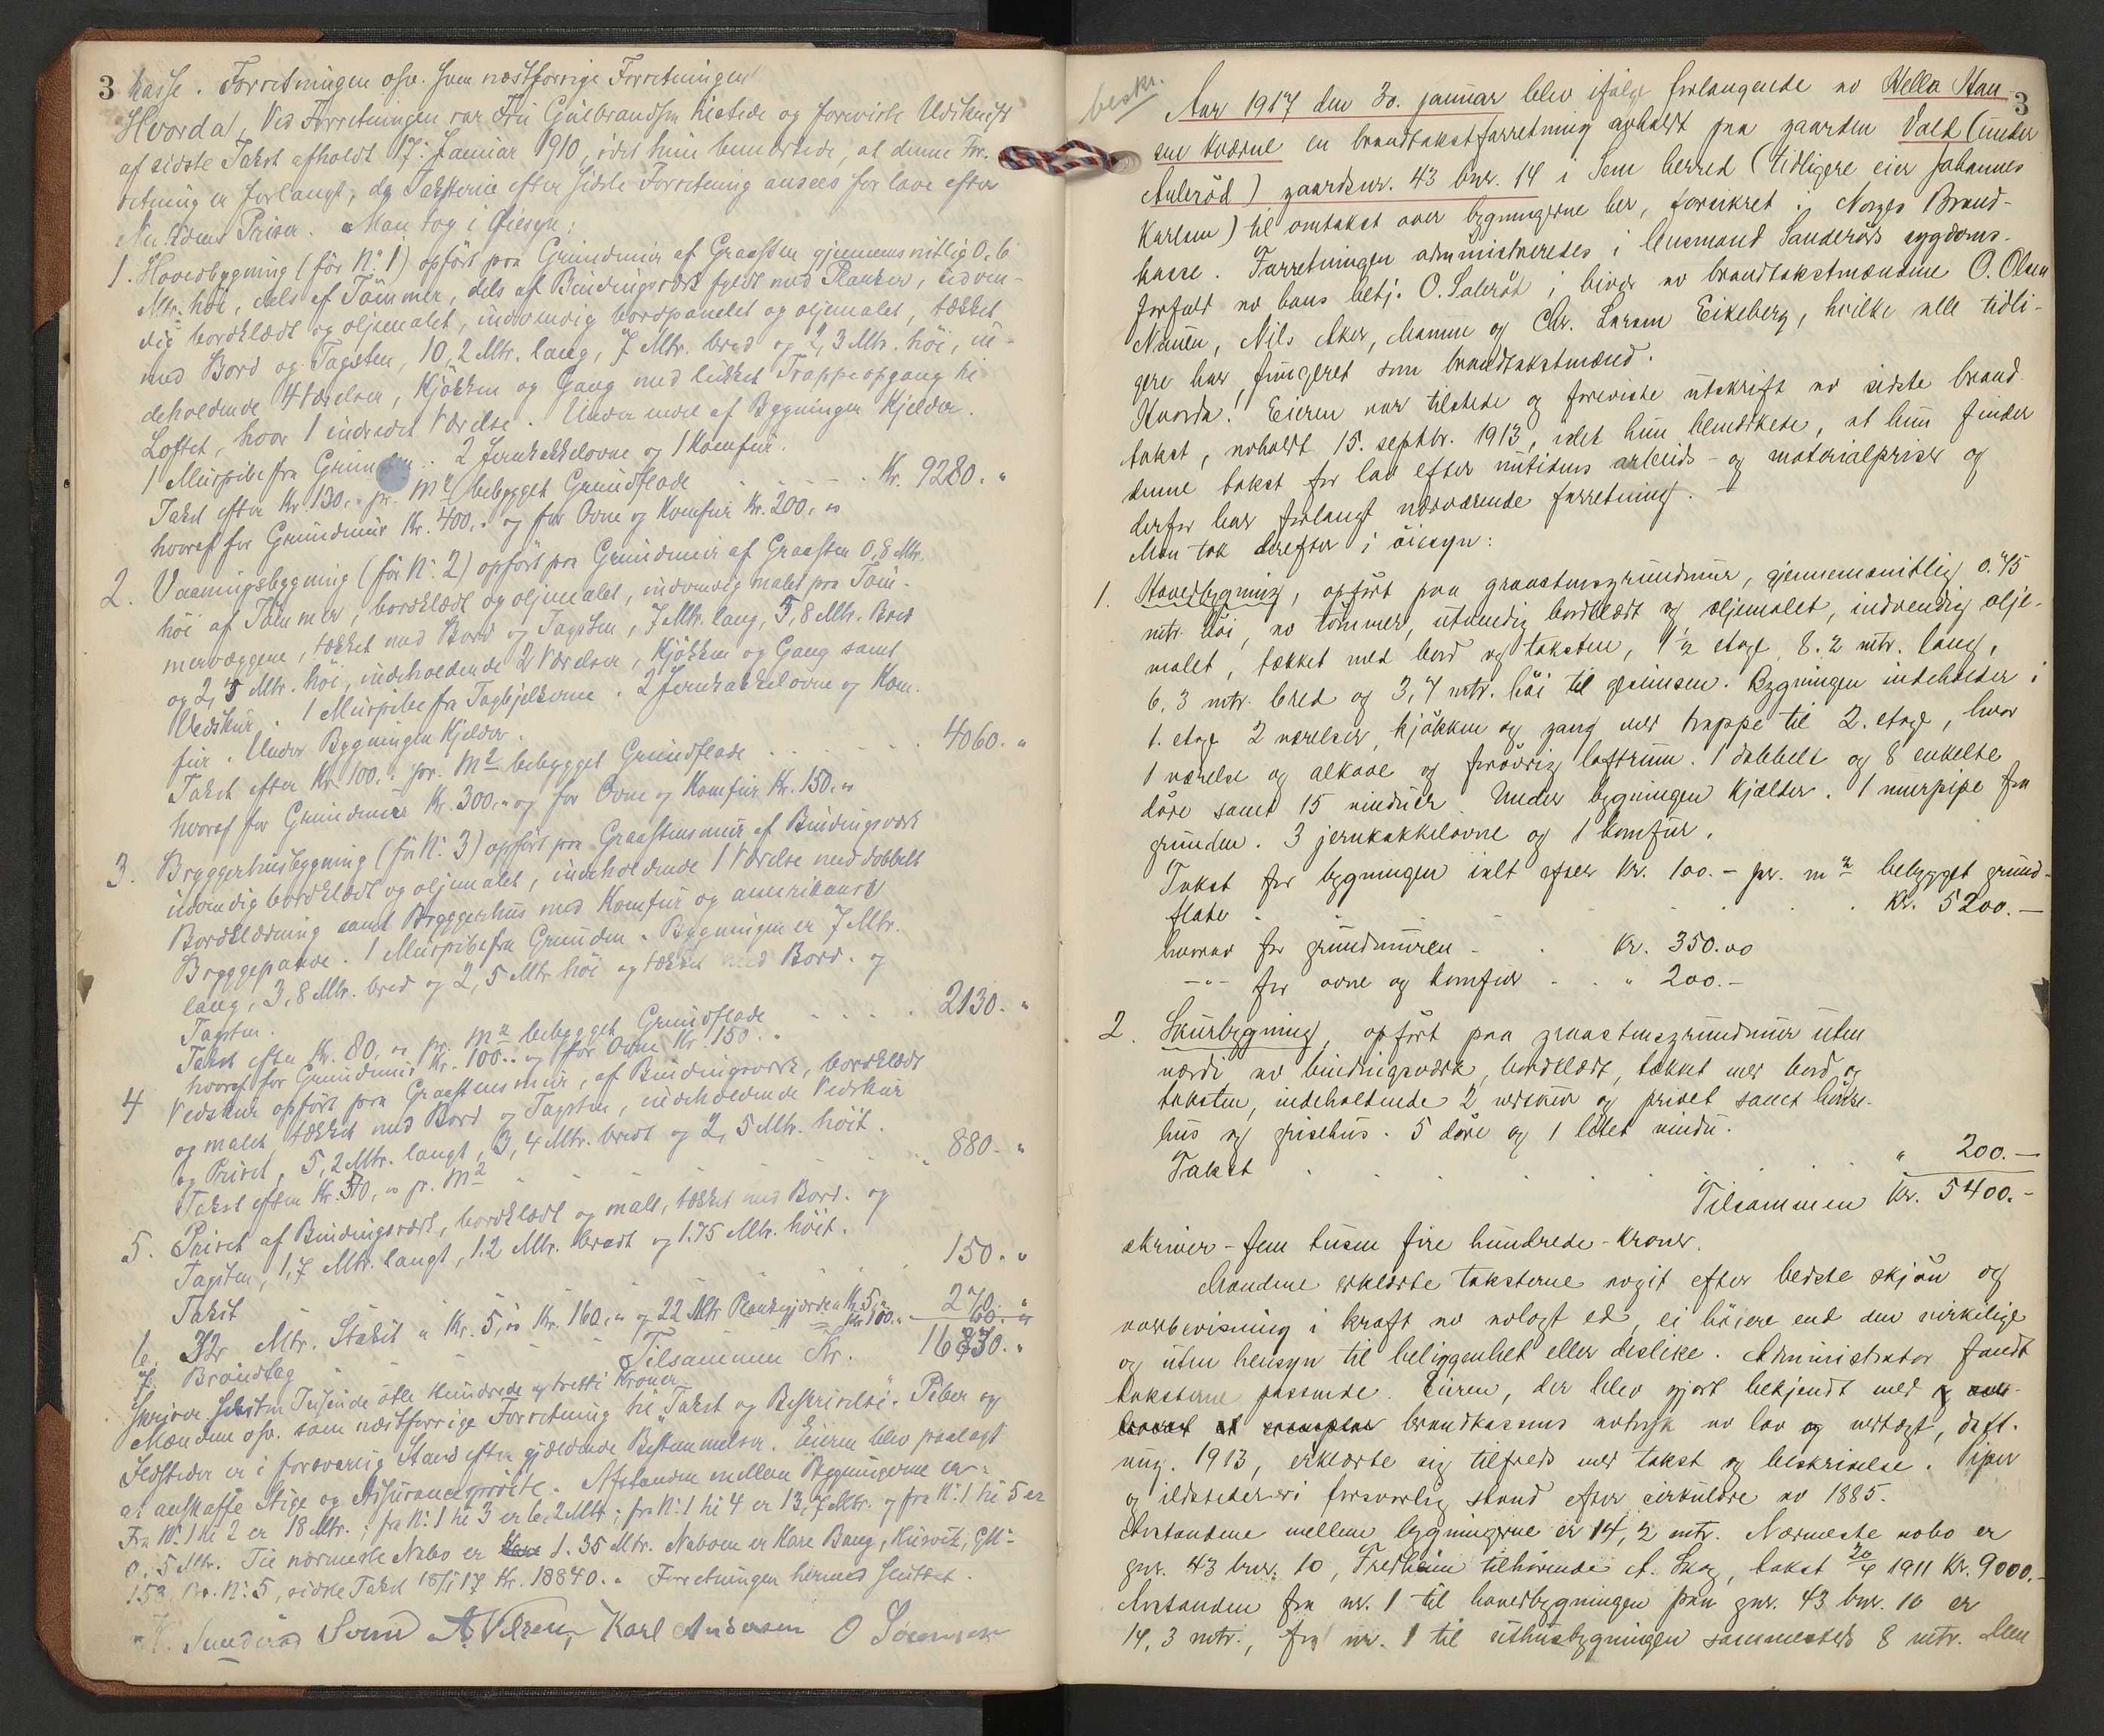 3
kasse. Forretningen osv. som næstforrige Forretningen
Hvorda, Ved Forretningen var Fru Gulbrandsen tilstede og foreviste Udskrift
af sidste Takst afholdt 17. Januar 1910, idet hun bemerkede, at denne For-
retning er forlangt, da Taksterne efter sidste Forretning ansees for lave efter
Nutidens Priser. Man tog i Øiesyn:
1. Hovedbygning (før No 1) opført paa Grundmur af Graasten gjennemsnitlig 0,6
Mtr. høi, dels af Tømmer, dels af Bindingsværk fyldt med Planker, udven-
dig bordklædt og oljemalet, indvendig bordpanelet og oljemalet, tækket
med Bord og Tagsten, 10,2 Mtr. lang, 7 Mtr. bred og 2,3 Mtr. høi, in-
deholdende 4 Værelser, Kjøkken og Gang med lukket Trappeopgang til
Loftet, hvor 1 indredet Værelse. Under endel af Bygningen Kjelder.
1 Murpibe fra Grunden. 2 Jernkakkelovne og 1 Komfur.
Takst efter Kr 130,- pr. M2 bebygget Grundflade Kr. 9280. "
hvoraf for Grundmur Kr. 400,- og for Ovne og Komfur Kr. 200,-
2. Vaaningsbygning (før No 2) opført paa Grundmur af Graasten 0,8 Mtr.
høi af Tømmer, bordklædt og oljemalet, indvendig malet paa Tøm-
mervæggene, tækket med Bord og Tagsten, 7 Mtr. lang, 5,8 Mtr. Bred
og 2,5 Mtr. høi, indeholdende 2 Værelser, Kjøkken og Gang samt
Vedskur. 1 Murpibe fra Tagbjelkerne. 2 Jernkakkelovne og Kom-
fur. Under Bygningen Kjelder.
Takst efter Kr. 100.- pr. M2 bebygget Grundflade 4060. "
hvoraf for Grundmur Kr. 300.- og for Ovne og Komfur Kr. 150.-
3. Bryggerhusbygning (før No 3) opført paa Graastensmur af Bindingsværk
udvendig bordklædt og oljemalet, indeholdende 1 Værelse med dobbelt
Bordklædning samt Bryggerhus med Komfur og amerikansk
Bryggepande. 1 Murpibe fra Grunden. Bygningen er 7 Mtr.
lang, 3,8 Mtr. bred og 2,5 Mtr høi og tækket med Bord- og
Tagsten.
Takst efter Kr. 80,- pr. M2 bebygget Grundflade 2130. "
hvoraf for Grundmur Kr. 100.- og for Ovne Kr. 150. "
4 Vedskur opført paa Graastensmur, af Bindingsværk, bordklædt
og malet tækket med Bord og Tagsten, indeholdende Vedskur
og Privet, 5,2 Mtr. langt, 3,4 Mtr. bredt og 2,5 Mtr. høit.
Takst efter Kr. 50,- pr. M2 880. "
5. Privet af Bindingsværk, bordklædt og malt, tækket med Bord- og
Tagsten, 1,7 Mtr. langt, 1.2 Mtr. bredt og 1.75 Mtr. høit.
Takst 150. "
6. 32 Mtr. Stakit a Kr. 5,- Kr. 160,- og 22 Mtr Plankegjerde a Kr 5,- Kr 100.- 270. "
7. Brøndteg 60. "
Tilsammen Kr. 16830. "
skriver Seksten Tusinde otte hundrede og tretti Kroner
Mændene osv. som næstforrige Forretning til "Takst og Beskrivelse". Peber og
Ildsteder er i forsvarlig Stand efter gjældende Bestemmelser. Eieren blev paalagt
at anskaffe Stige og Assurancesprøite. Afstanden mellem Bygningerne er:
Fra No 1 til 2 er 18 Mtr.; fra No 1 til 3 er 6,2 Mtr; fra No 1 til 4 er 13,7 Mtr. og fra No 1 til 5 er
0,5 Mtr. Til nærmeste Nabo er 1.35 Mtr. Naboen er Kare Bang, GNo
153, Br. No 5, sidste Takst 18/1 17 Kr. 18840. " Forretningen hermed sluttet.
Sunderød Svend A Nilsen, Karl Andersen O Sørensen
3
beskr.
Aar 1917 den 30. januar blev ifølge forlangende av Hella Han-
sine Kværne en brandtakstforretning avholdt paa gaarden Vold (under
Aulerød) gaardsnr. 43 bnr. 14 i Sem herred (tidligere eier Johannes
Karlsen) til omtakst over bygningerne her, forsikret i Norges Brand-
kasse. Forretningen administreredes i lensmand Sunderøds sygdoms-
forfald av hans betj. O. Solerød i bivær av brandtakstmændene O. Olsen
Nauen, Nils Aker, Mamen og Chr. Larsen Eikeberg, hvilke alle tidli-
gere har fungeret som brandtakstmænd.
Hvorda! Eieren var tilstede og foreviste utskrift av sidste brand-
takst, avholdt 15. septbr. 1913, idet hun bemerkede, at hun finder
denne takst for lav efter nutidens arbeids- og materialpriser og
derfor har forlangt nærværende forretning.
Man tok derefter i øiesyn:
1. Hovedbygning, opført paa graastensgrundmur, gjennemsnitlig 0.75
mtr. høi, av tømmer, utvendig bordklædt og oljemalet, indvendig olje-
malet, tækket med bord og taksten, 1 1/2 etage, 8.2 mtr. lang,
6,3 mtr. bred og 3,4 mtr. høi til gesimsen. Bygningen indeholder i
1. etage 2 værelser, kjøkken og gang med trappe til 2. etage, hvor
1 værelse og alkove og forøvrig loftrum. 1 dobbelt og 8 enkelte
døre samt 15 vinduer. Under bygningen kjælder. 1 murpipe fra
grunden. 3 jernkakkelovne og 1 komfur.
Takst for bygningen ialt efter Kr. 100.- pr. m2 bebygget grund-
flate Kr. 5200.-
hvorav for grundmuren Kr. 350.00
-"- for ovne og komfur " 200.-
2. Skurbygning, opført paa graastensgrundmur uten
værdi av bindingsværk, bordklædt, tækket med bord og
taksten, indeholdende 2 vedskur og privet samt hønse-
hus og grisehus. 5 døre og 1 litet vindu.
Takst " 200.-
Tilsammen Kr. 5400.-
skriver - fem tusen fire hundrede - kroner.
Mændene erklærte taksterne avgit efter bedste skjøn og
overbevisning i kraft av avlagt ed, ei høiere end den virkelige
og uten hensyn til beliggenhet eller deslike. Administrator fandt
taksterne passende. Eieren, der blev gjort bekjendt med
brandkassens avtryk av lov og vedtægt, deft.
aug. 1913, erklærte sig tilfreds med takst og beskrivelse. Piper
og ildsteder er i forsvarlig stand efter cirkulære av 1885.
Avstandene mellem bygningerne er 14,2 mtr. Nærmeste nabo er
gnr. 43 bnr. 10, Fredheim tilhørende A. Skog, takst 20/4 1911 Kr. 9000.-
Avstanden fra nr. 1 til hovedbygningen paa gnr. 43 bnr. 10 er
14,3 mtr., fra nr. 1 til uthusbygningen sammesteds 8 mtr. Den